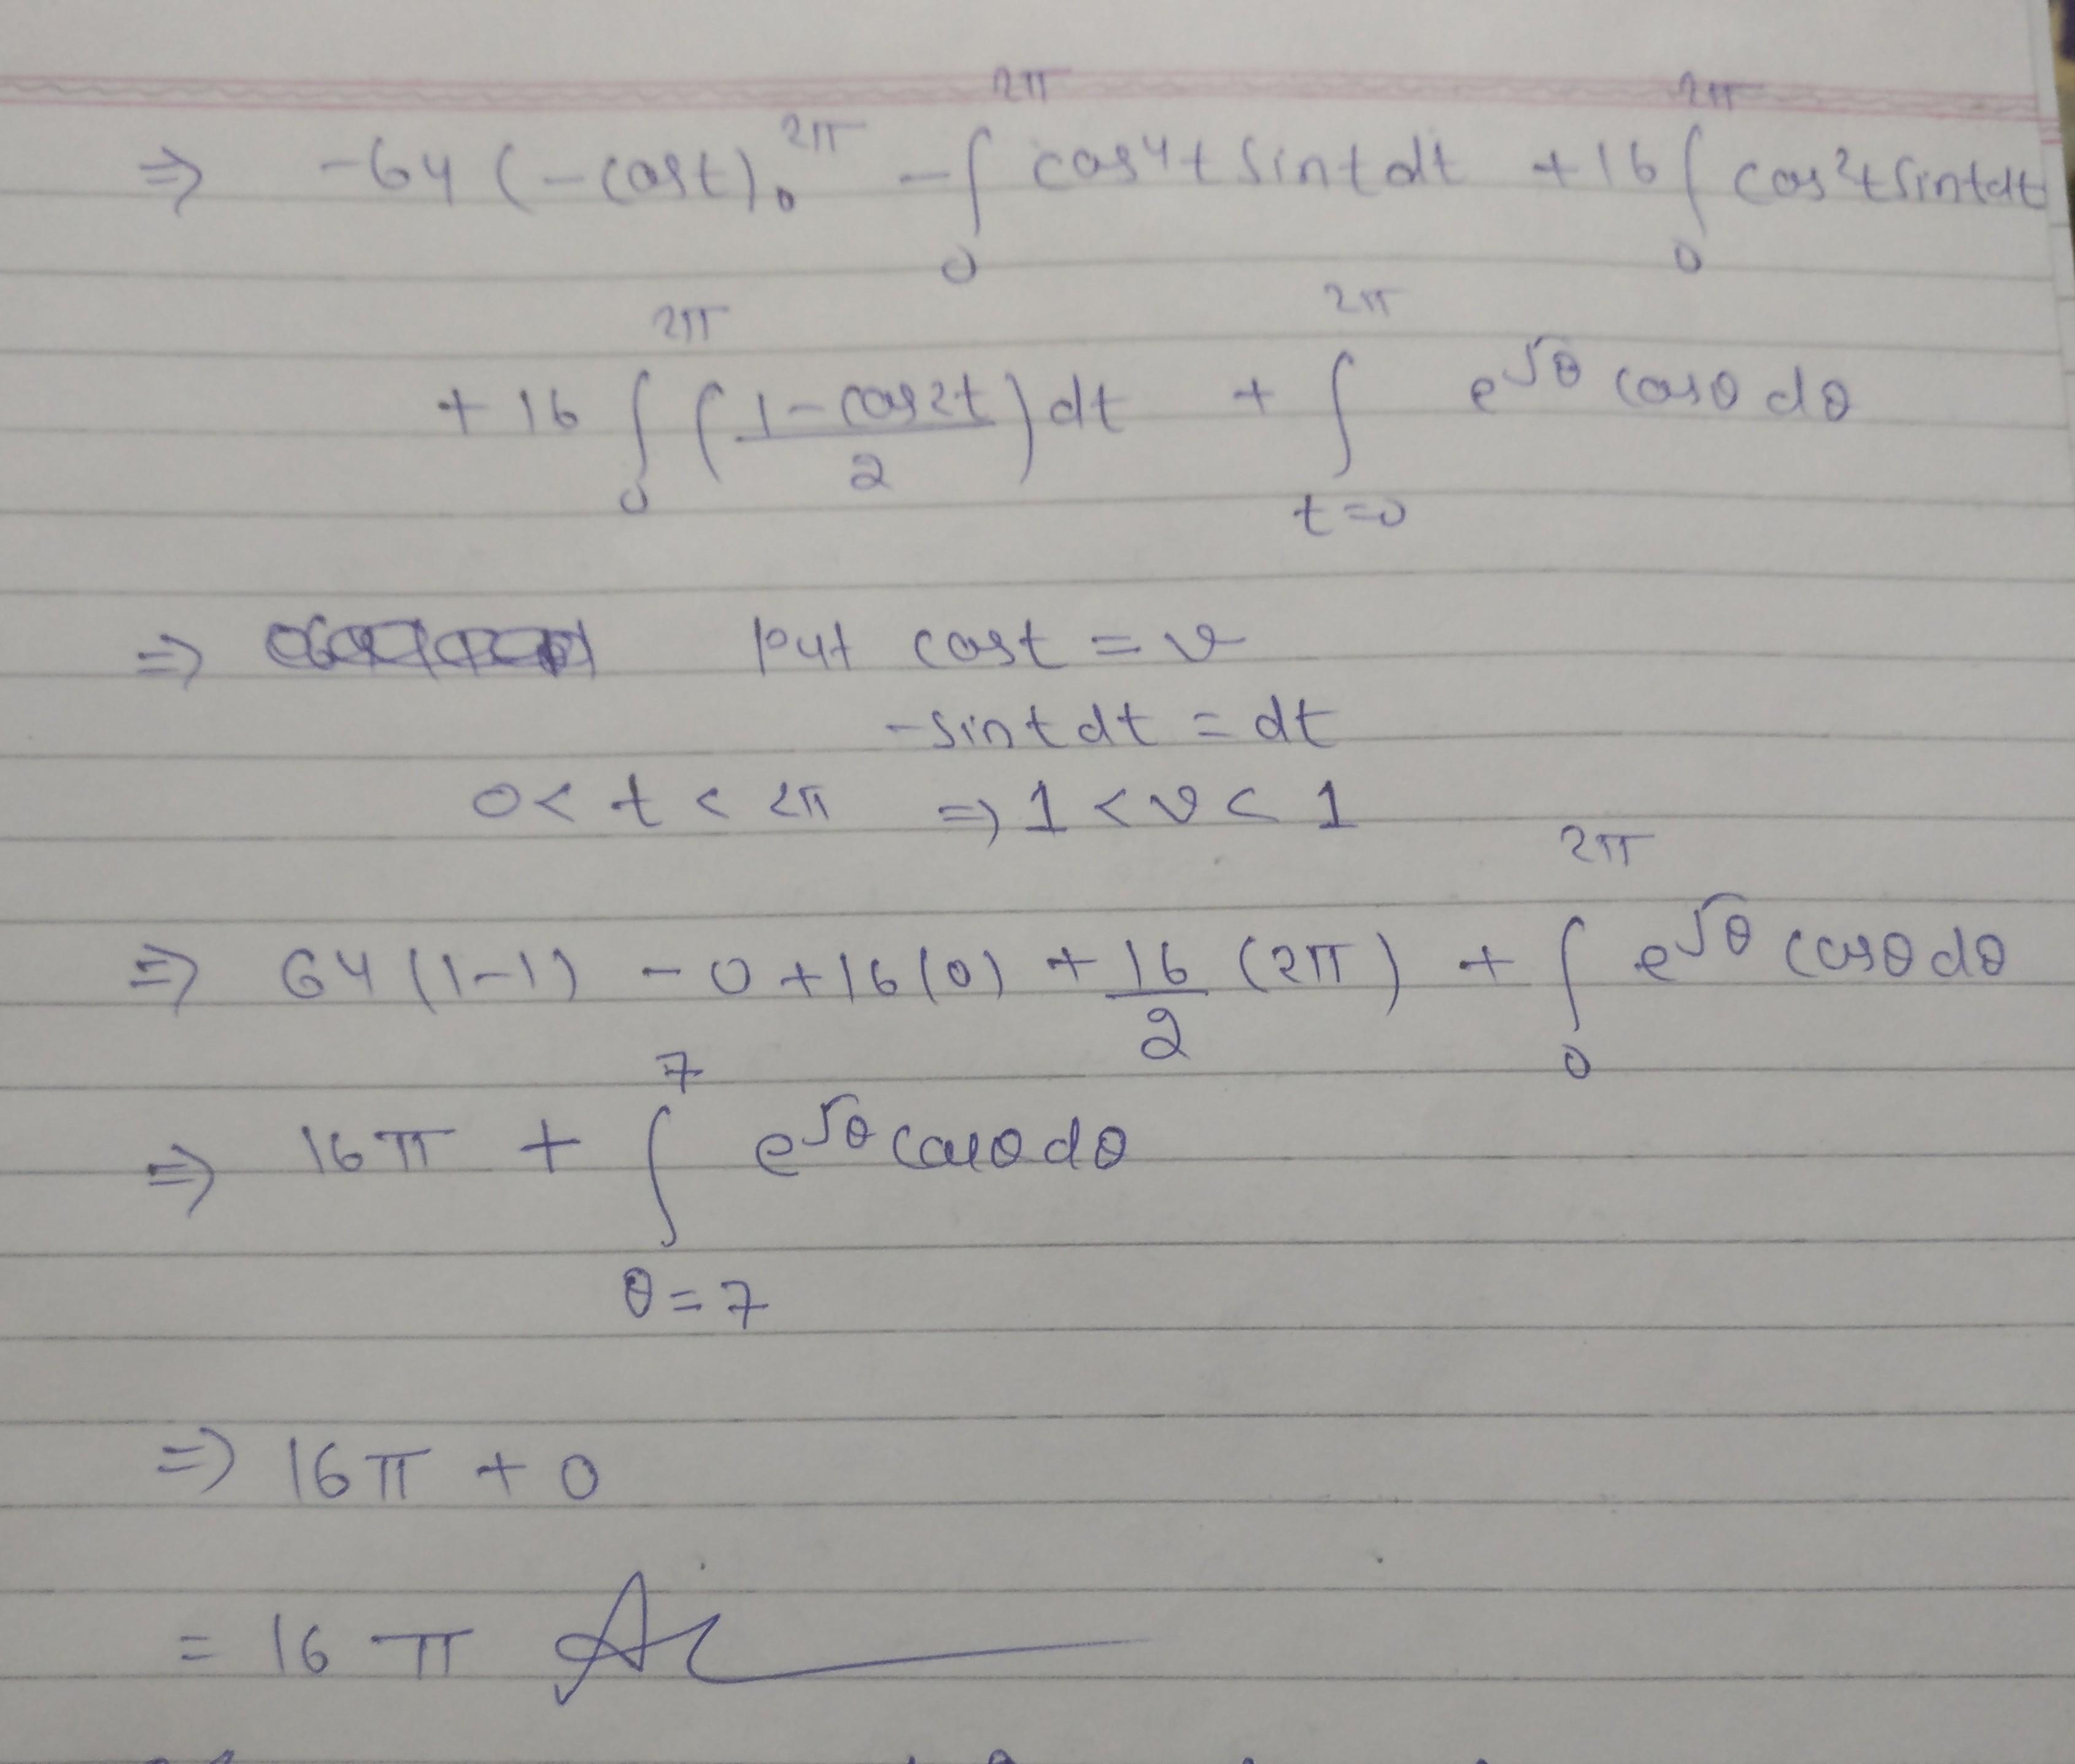 ⇒ -64 (-cost)₀^2π - ∫₀^2π cos⁴t sint dt + 16 ∫₀^2π cos²t sint dt
+ 16 ∫₀^2π (1-cos2t / 2) dt + ∫_{t=0}^2π e^√θ cosθ dθ
⇒ put cost = v
-sint dt = dt
0 < t < 2π ⇒ 1 < v < 1
⇒ 64 (1-1) - 0 + 16(0) + 16/2 (2π) + ∫₀^2π e^√θ cosθ dθ
⇒ 16π + ∫_{θ=7}^7 e^√θ cosθ dθ
⇒ 16π + 0
= 16π